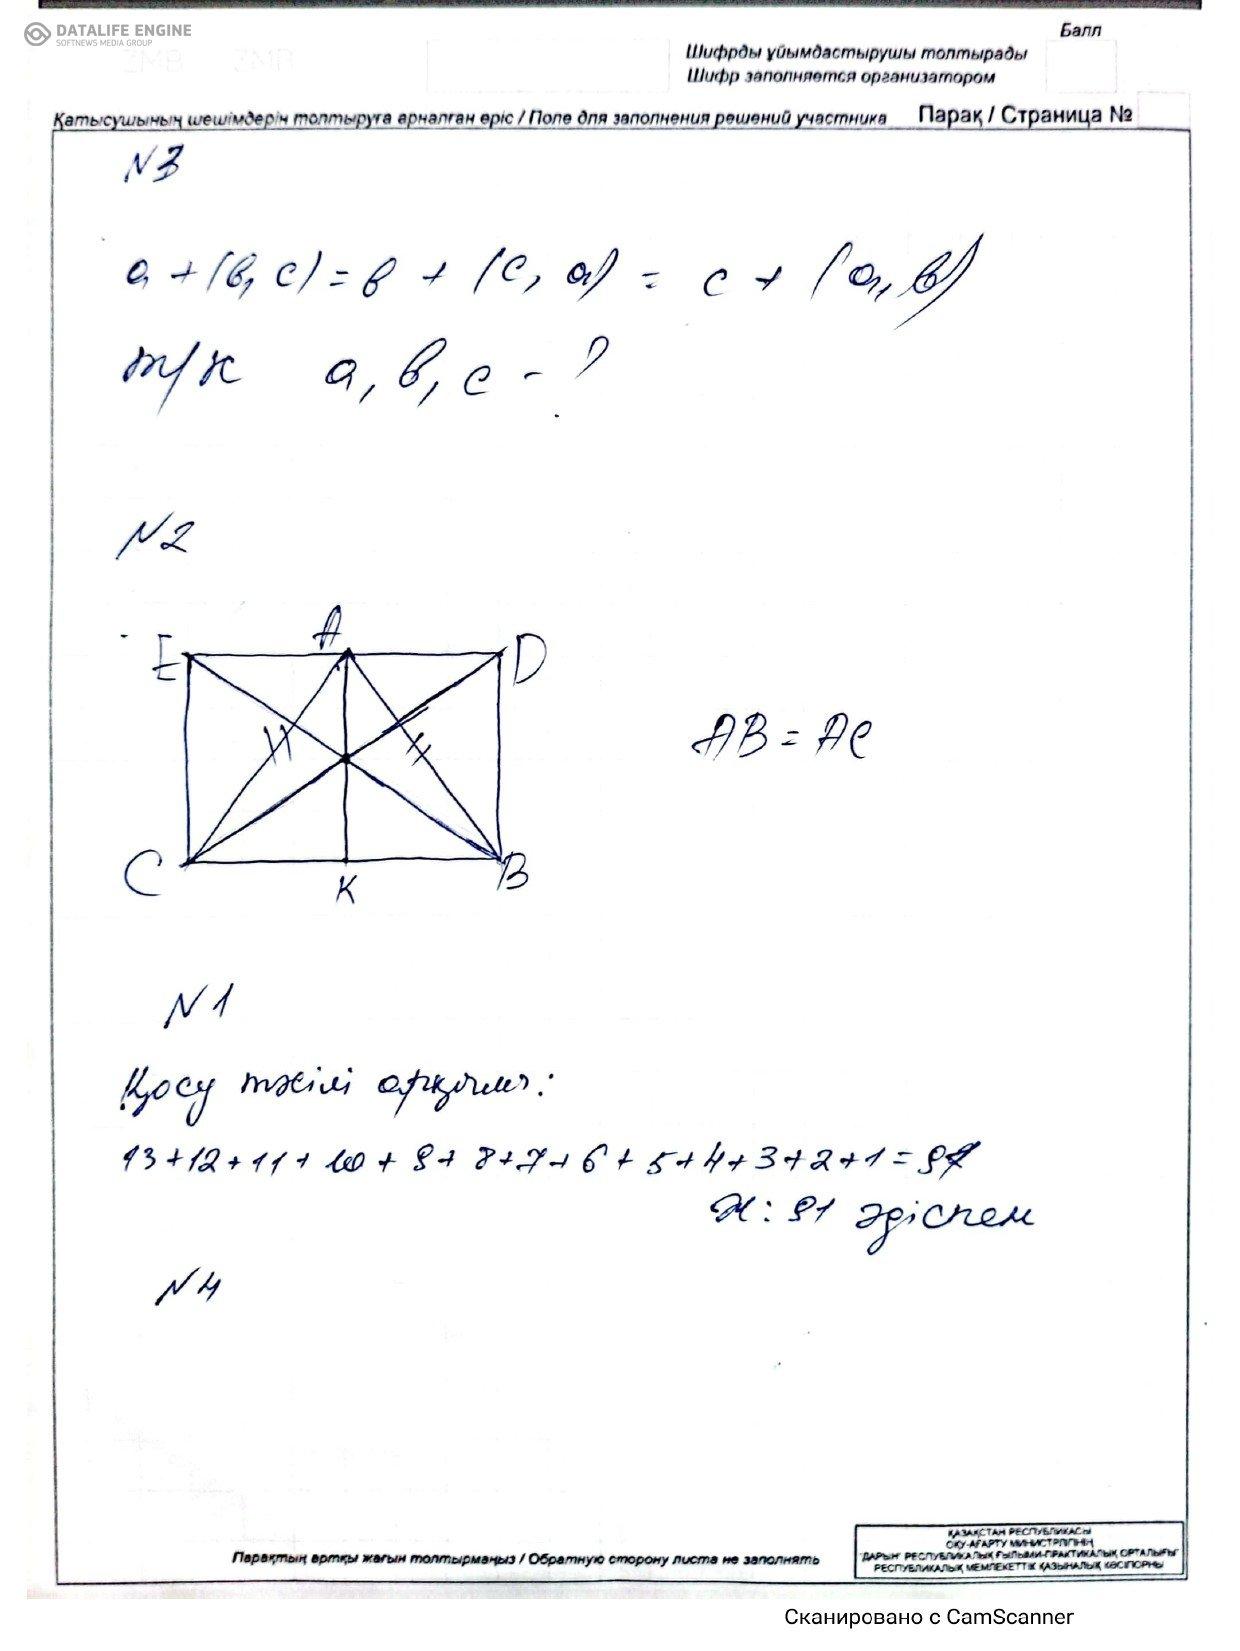 DATALIFE ENGINE
SOFTNEWS MEDIA GROUP
Балл
Шифрды ұйымдастырушы толтырады
Шифр заполняется организатором
Қатысушының шешімдерін толтыруға арналған өріс / Поле для заполнения решений участника
Парақ / Страница №
N3
a + (в, c) = в + (c, a) = c + (a, в)
т/к a, в, c - ?
N2
E A D
AB = AC
C K B
N1
Қосу тәсілі арқылы:
13+12+11+10+9+8+7+6+5+4+3+2+1=91
Ж: 91 әдіспен
N4
Парақтың артқы жағын толтырмаңыз / Обратную сторону листа не заполнять
ҚАЗАҚСТАН РЕСПУБЛИКАСЫ
ОҚУ-АҒАРТУ МИНИСТРЛІГІНІҢ
"ДАРЫН" РЕСПУБЛИКАЛЫҚ ҒЫЛЫМИ-ПРАКТИКАЛЫҚ ОРТАЛЫҒЫ"
РЕСПУБЛИКАЛЫҚ МЕМЛЕКЕТТІК ҚАЗЫНАЛЫҚ КӘСІПОРНЫ
Сканировано с CamScanner